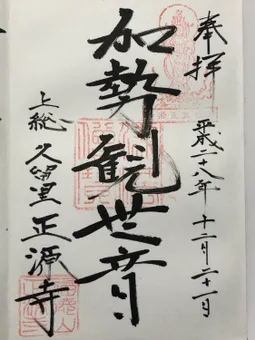 奉拝
平成二十八年 十二月二十二日
加勢観世音
上総 久留里 正源寺